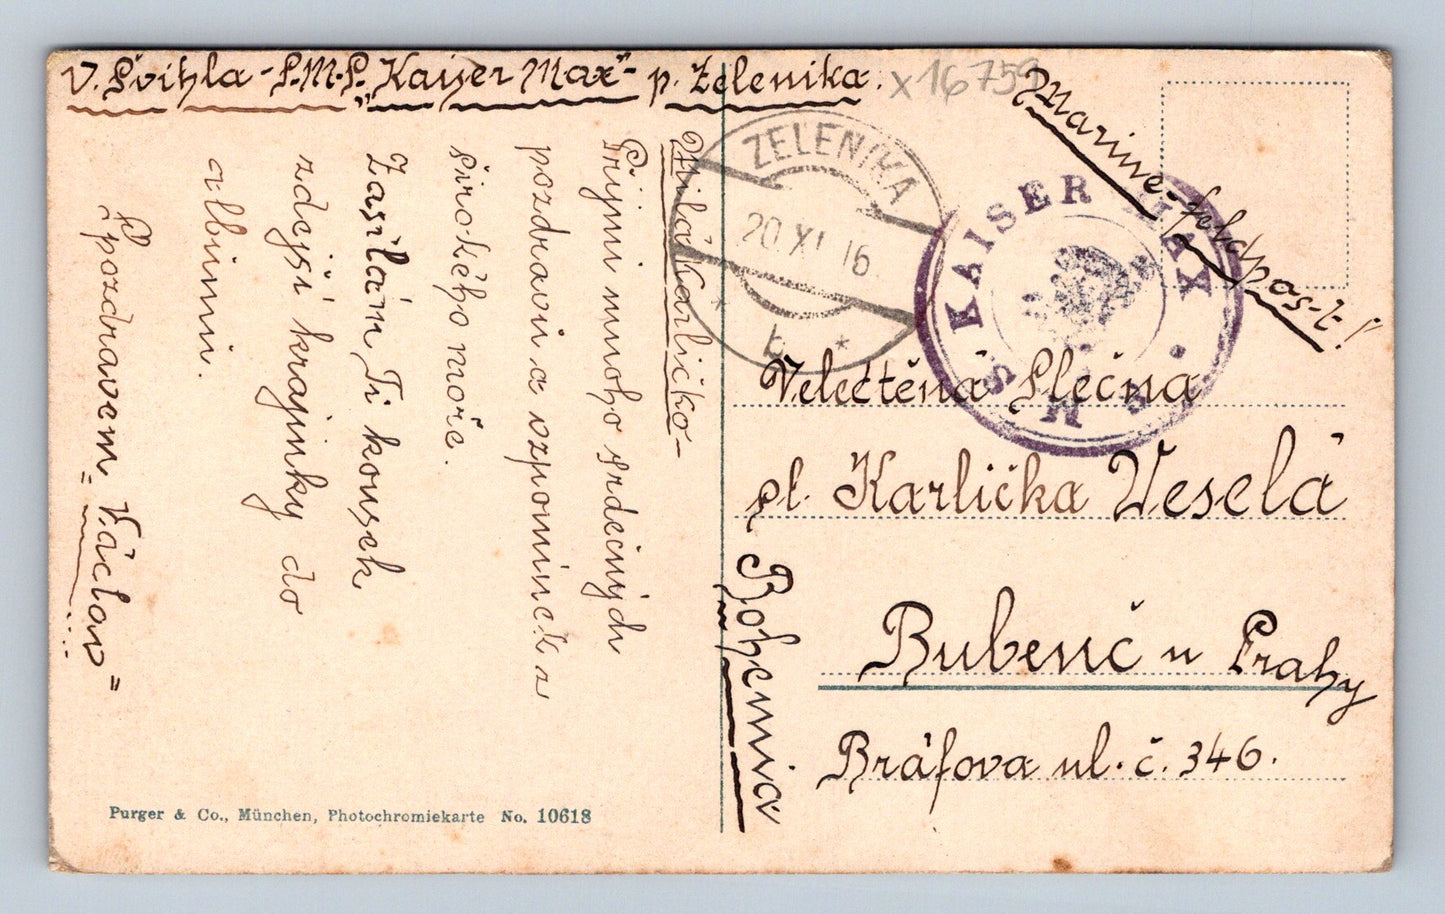 V. Švihla - S.M.S. "Kaiser Max" - p. Zelenika.
x 16759
Marine-feldpost!
ZELENIKA
20 XI 16
* b *
S M S KAISER MAX
Milá Karličko-
Přijmi mnoho srdečných
pozdravů a vzpomínek z
širokého moře.
Zasílám Ti kousek
zdejší krajinky do
albumu.
S pozdravem
"Václav"
Velectěná Slečna
sl. Karlička Veselá
Bubeneč u Prahy
Bráfova ul. č. 346.
Bohemia
Purger & Co., München, Photochromiekarte No. 10618